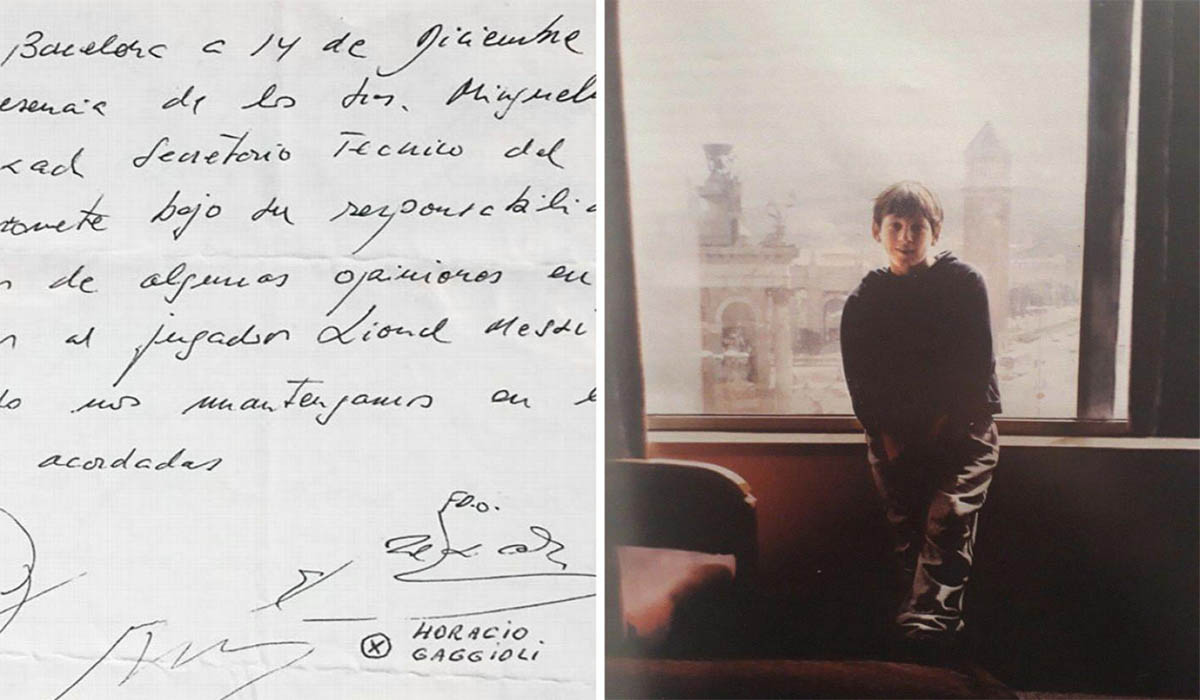 Barcelona a 14 de Diciembre
esencia de los Sres. Minguel
xach Secretario Tecnico del
tomete bajo su responsabili
s de algunas opiniones en
n al jugador Lionel Messi
do nos mantengamos en
acordadas
FDO.
HORACIO
GAGGIOLI